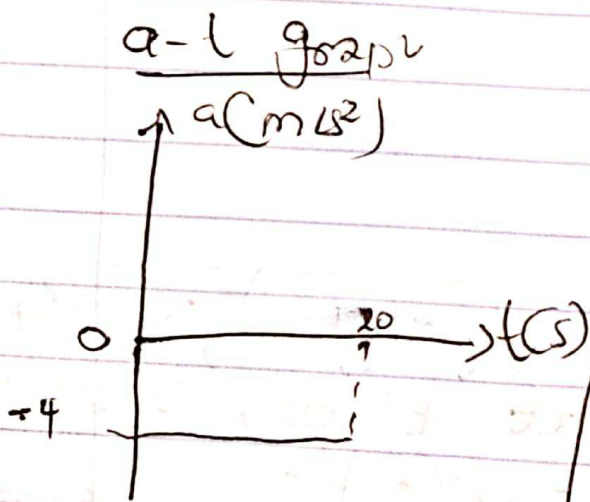 a-t graph
a(m/s²)
20
0
t(s)
-4